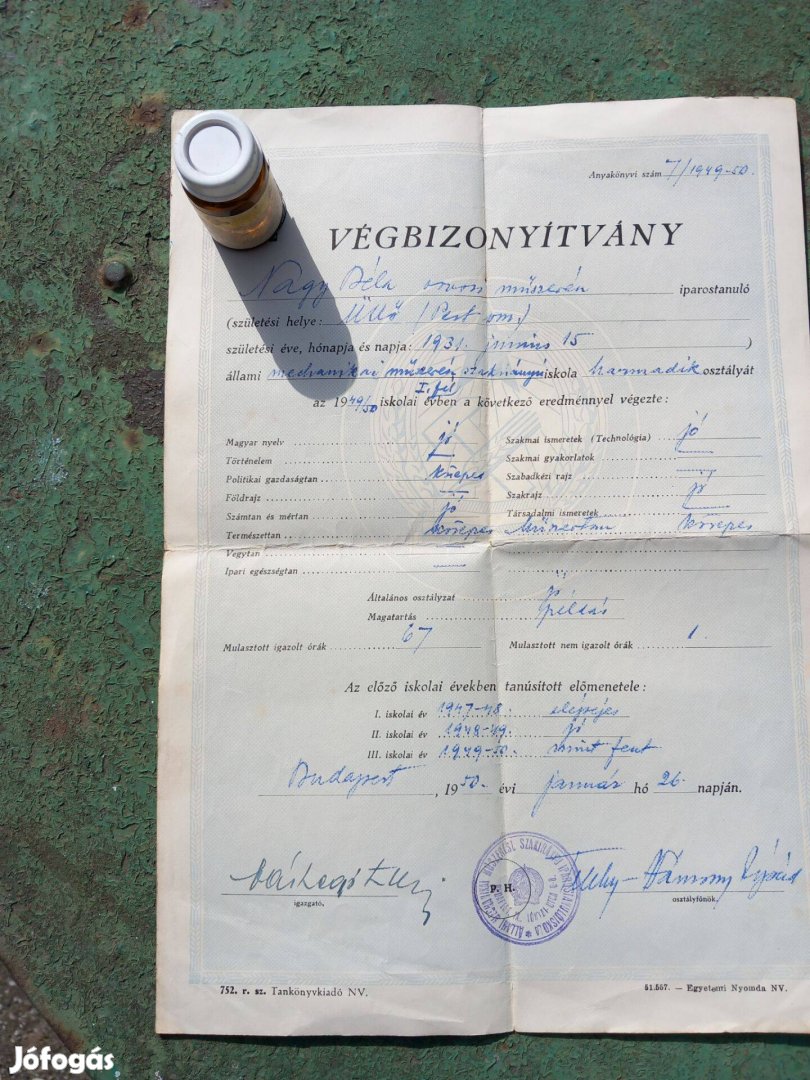 Anyakönyvi szám 7/1949-50.
VÉGBIZONYÍTVÁNY
Nagy Béla orvosi műszerész iparostanuló
(születési helye: Üllő (Pest vm.)
születési éve, hónapja és napja: 1931. június 15 )
állami mechanikai műszerész szakirányú iskola harmadik osztályát
I. fél
az 1949/50 iskolai évben a következő eredménnyel végezte:
Magyar nyelv jó
Történelem —
Politikai gazdaságtan közepes
Földrajz —
Számtan és mértan jó
Természettan közepes
Vegytan —
Ipari egészségtan —
Szakmai ismeretek (Technológia) jó
Szakmai gyakorlatok —
Szabadkézi rajz —
Szakrajz jó
Társadalmi ismeretek —
Műszertan közepes
Általános osztályzat jó
Magatartás példás
Mulasztott igazolt órák 67
Mulasztott nem igazolt órák 1.
Az előző iskolai években tanúsított előmenetele:
I. iskolai év 1947-48. elégséges
II. iskolai év 1948-49. jó
III. iskolai év 1949-50. mint fent
Budapest, 1950. évi január hó 26. napján.
igazgató,
P. H.
osztályfőnök.
752. r. sz. Tankönyvkiadó NV.
51.557. — Egyetemi Nyomda NV.
Jófogás